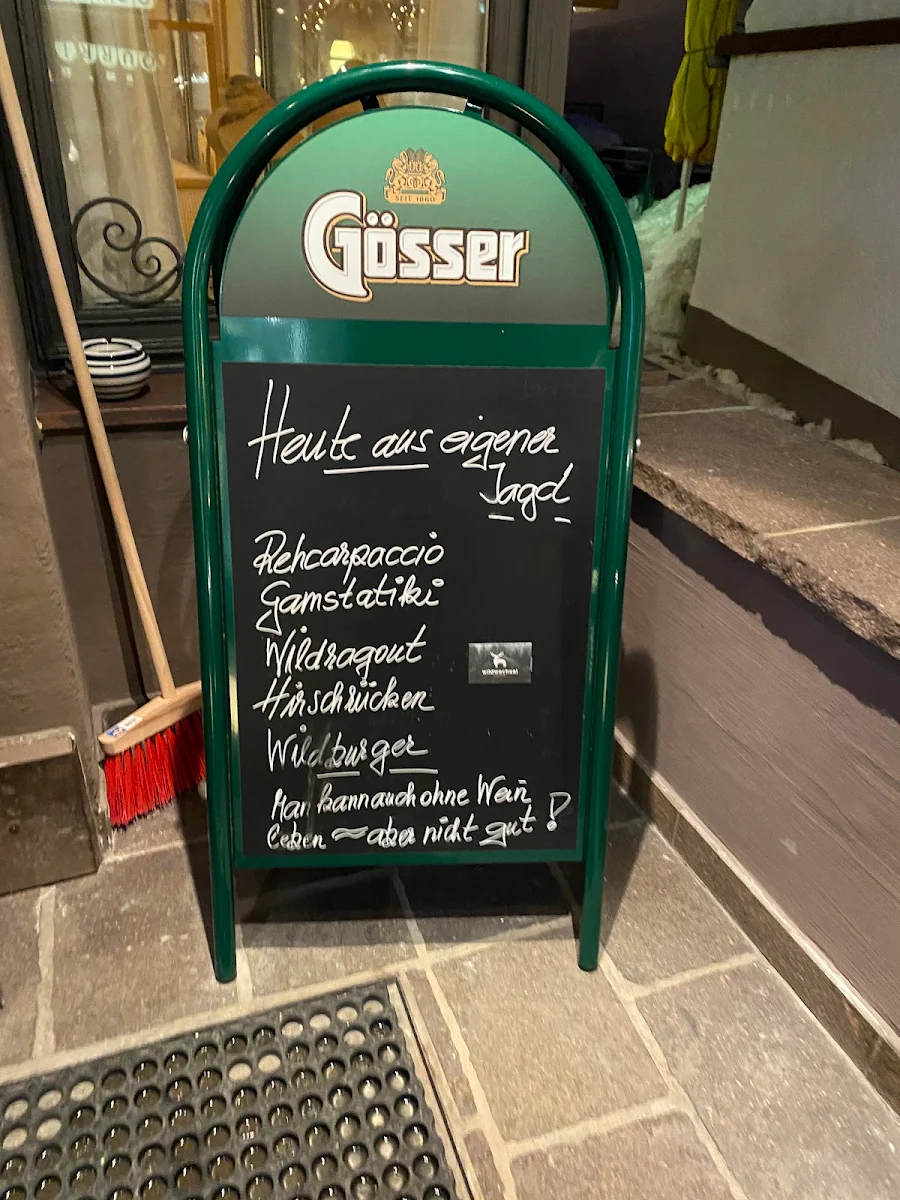 SEIT 1860
Gösser
Heute aus eigener
Jagd
Rehcarpaccio
Gamstatiki
Wildragout
wildwechsel
Hirschrücken
Wildburger
Man kann auch ohne Wein
Leben ≈ aber nicht gut !